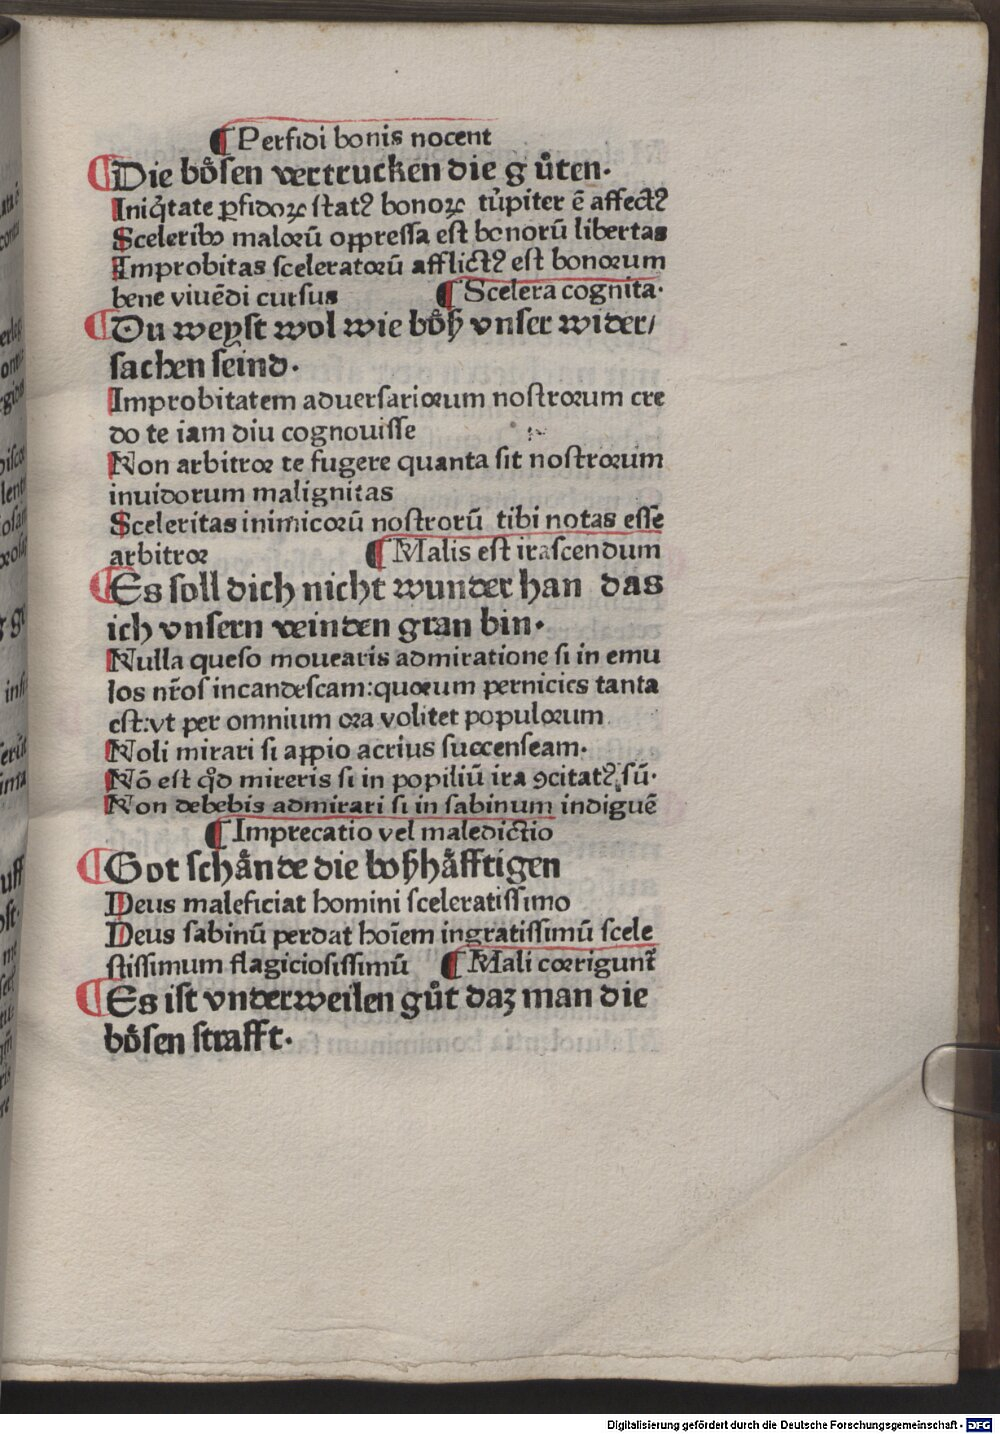 ¶ Perfidi bonis nocent
¶ Die bo̊sen vertrucken die gůten.
Iniq̇tate ꝑfidoꝝ statꝰ bonoꝝ tůpiter ē affectꝰ
Sceleribꝰ maloꝛū oppressa est bonoꝛū libertas
Improbitas sceleratoꝛū afflictꝰ est bonoꝛum
bene viuēdi cursus ¶ Scelera cognita.
¶ Du weyst wol wie bo̊ß vnser wider/
sachen seind.
Improbitatem aduersarioꝛum nostroꝛum cre
do te iam diu cognouisse
Non arbitroꝛ te fugere quanta sit nostroꝛum
inuidorum malignitas
Sceleritas inimicoꝛū nostroꝛū tibi notas esse
arbitroꝛ ¶ Malis est irascendum
¶ Es soll dich nicht wunder han das
ich vnsern veinden gran bin.
Nulla queso mouearis admiratione si in emu
los nr̄os incandescam:quoꝛum pernicies tanta
est:vt per omnium oꝛa volitet populoꝛum
Noli mirari si appio acrius succenseam.
Nō est qd̛ mireris si in popiliū ira ꝯcitatꝰ sū.
Non debebis admirari si in sabinum indiguē
¶ Imprecatio vel maledictio
¶ Got scha̎nde die boßha̎fftigen
Deus maleficiat homini sceleratissimo
Deus sabinū perdat hoīem ingratissimū scele
stissimum flagiciosissimū ¶ Mali coꝛrigunt᷑
¶ Es ist vnderweilen gůt daz man die
bo̊sen strafft.
Digitalisierung gefördert durch die Deutsche Forschungsgemeinschaft - DFG